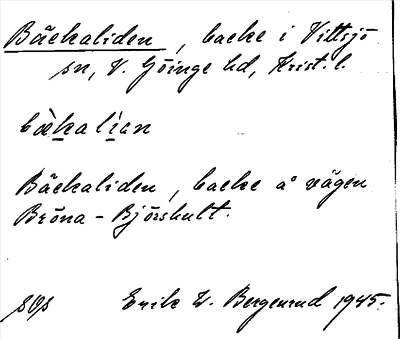 Bäckaliden, backe i Vittsjö
sn, V. Göinge hd, Krist. l.
bækaliən
Bäckaliden, backe å vägen
Bröna - Björshult.
Erik W. Bergenrud 1945.